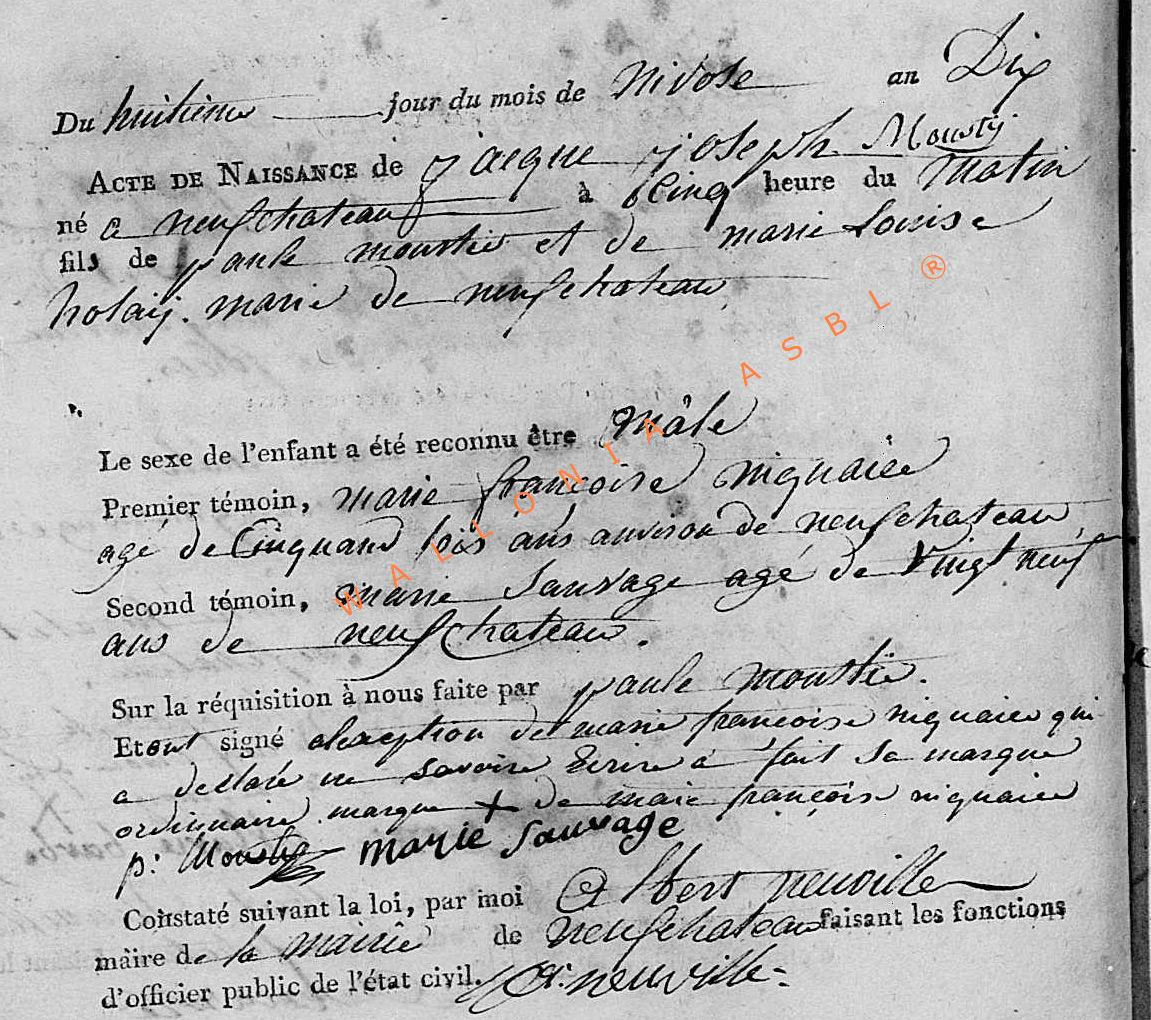 Du huitiem jour du mois de nivose an Dix
ACTE DE NAISSANCE de jacque joseph Mousty
né a neufchateau à Cinq heure du matin
fils de paule moustie et de marie Louise
holaij. marie de neufchateau
Le sexe de l'enfant a été reconnu être mâle
Premier témoin, marie françoise niquaice
agé de Cinquand ans anviron de neufchateau
Second témoin, marie Sauvage agé de vingt neuf
ans de neufchateau.
Sur la réquisition à nous faite par paule moustie.
Etont signé alexeption de marie françoise niquaice qui
a declaré ne savoire Ecrire a fait sa marque
ordinnaire marque + de marie françoise niquaice
p: Mousty marie Sauvage
Constaté suivant la loi, par moi Albert neuville
maire de la mairie de neufchateau faisant les fonctions
d'officier public de l'état civil. A: neuville
WALLONIA ASBL ®